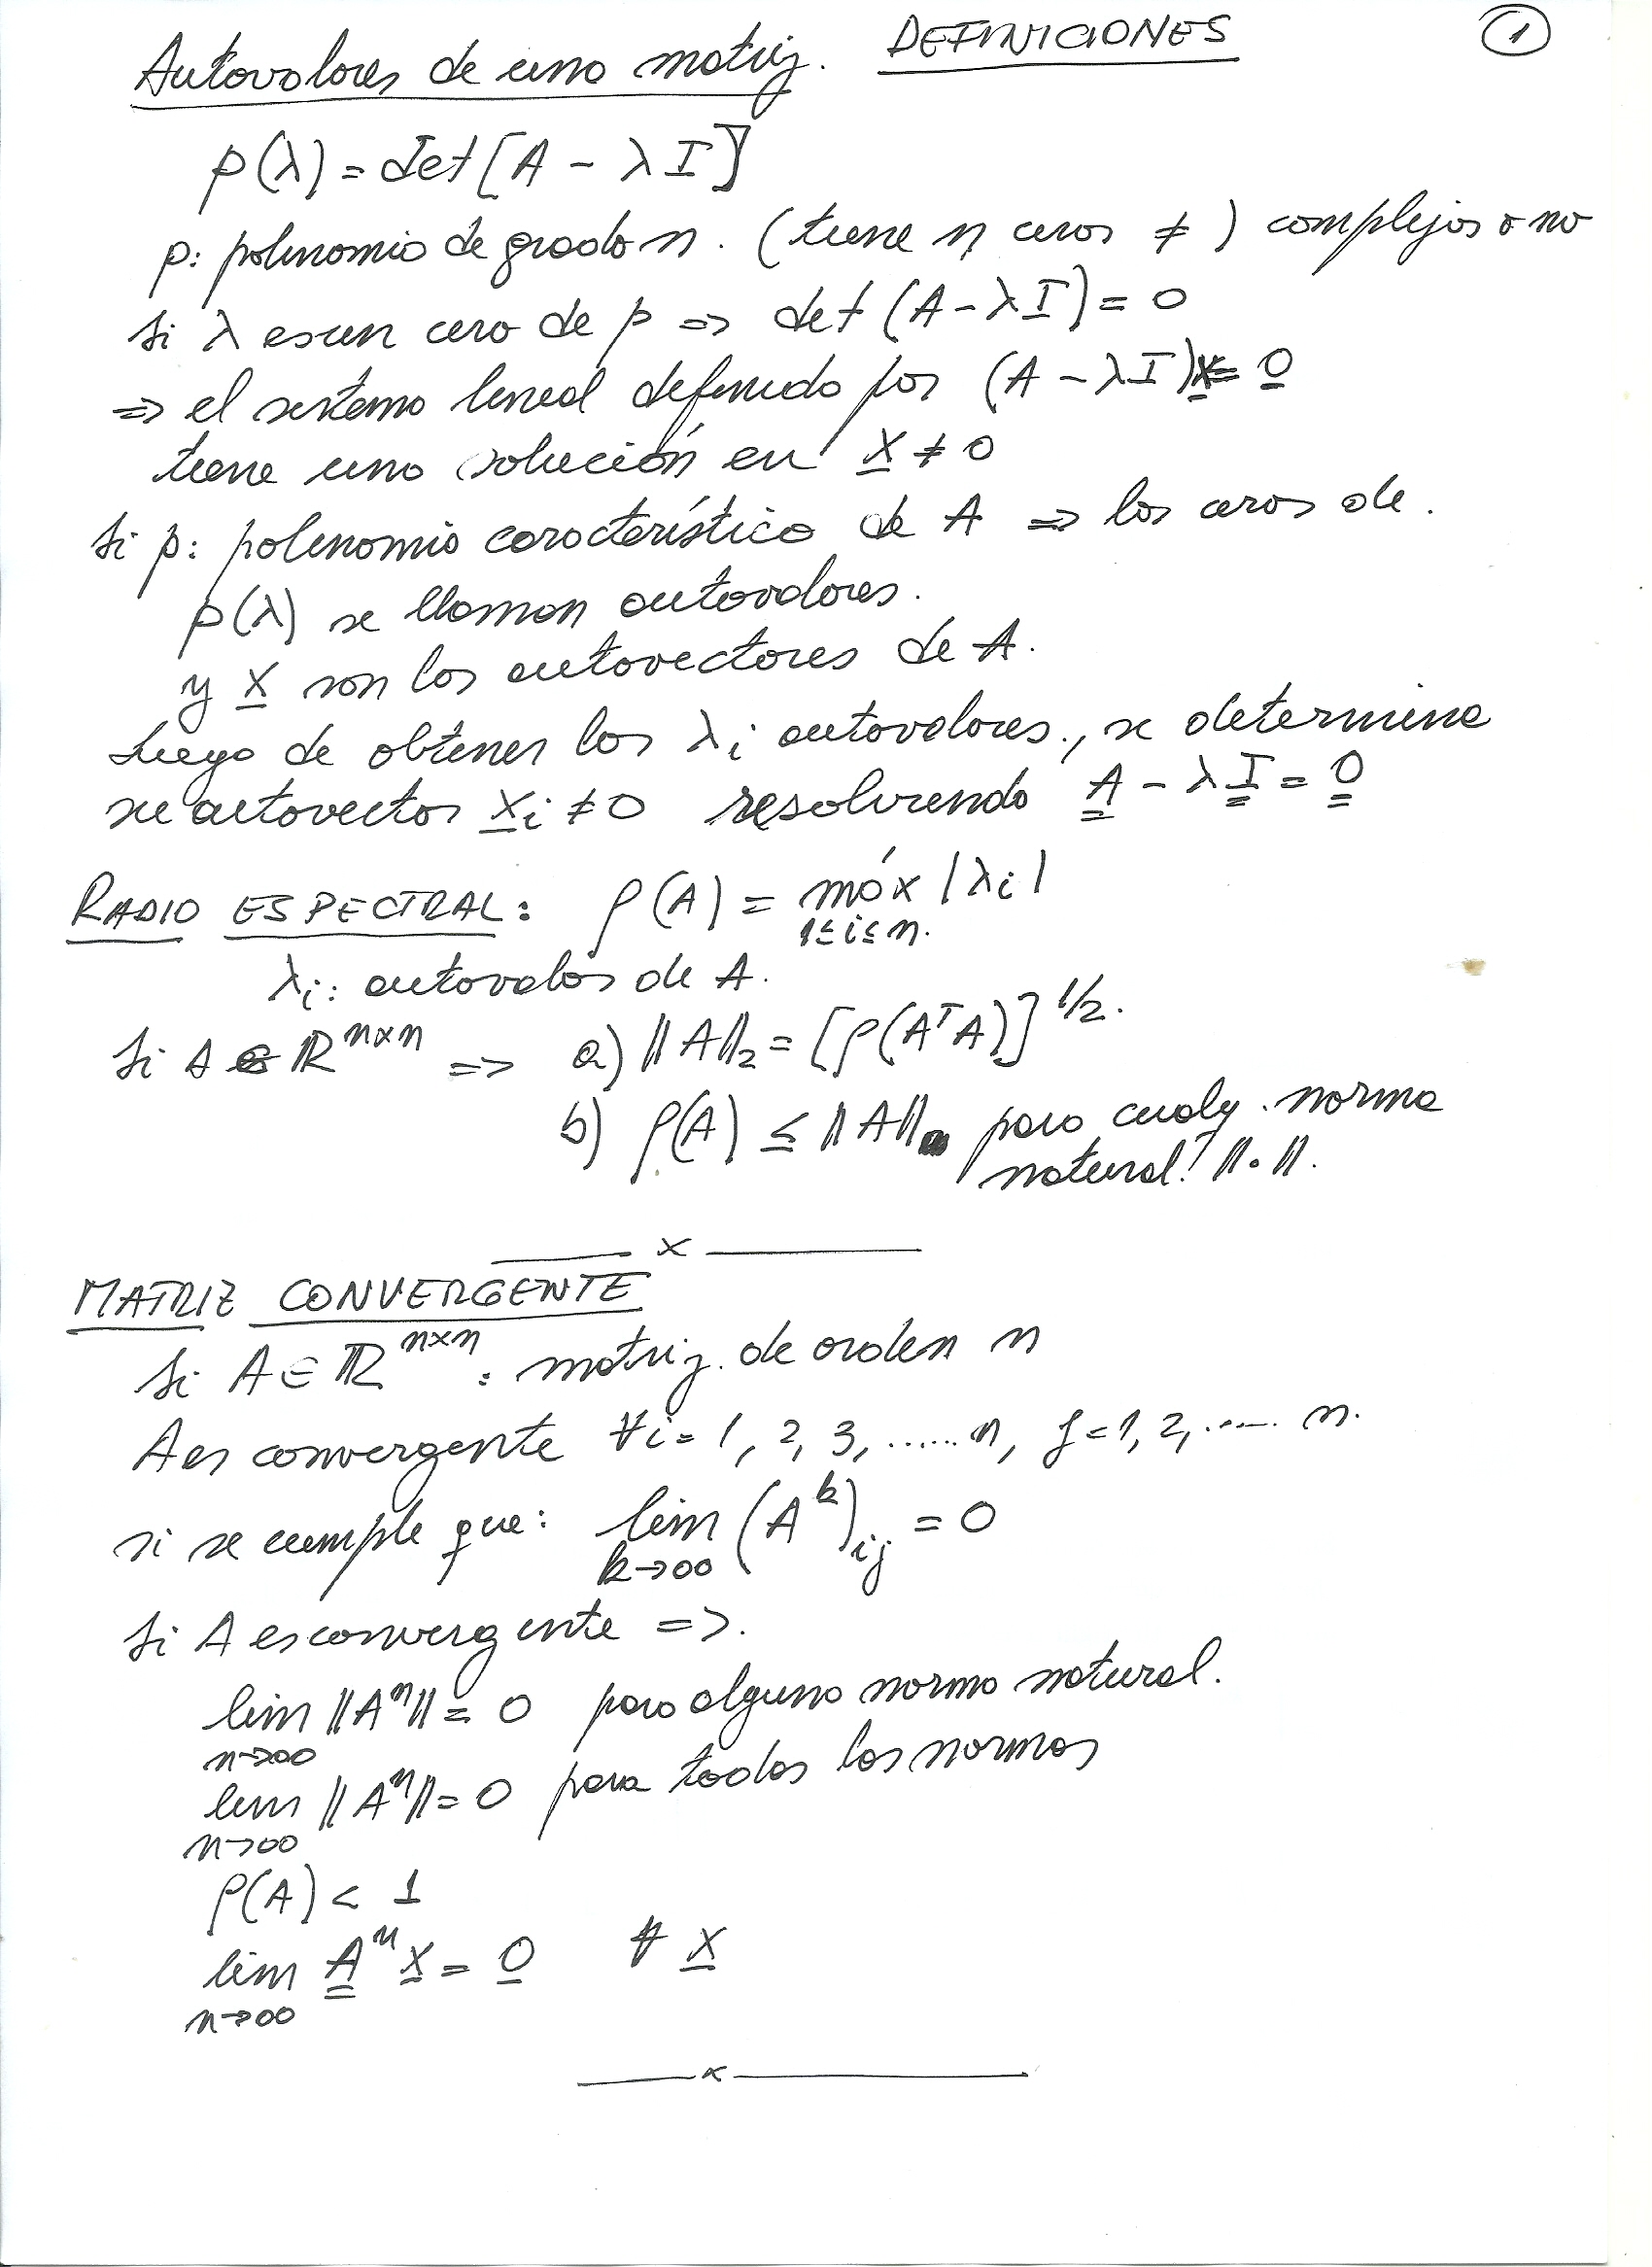 Autovalores de una matriz. DEFINICIONES 1
p(λ) = det[A - λI]
p: polinomio de grado n. (tiene n ceros ≠) complejos o no
Si λ es un cero de p => det (A - λI) = 0
=> el sistema lineal definido por (A - λI)x = 0
tiene una solución en x ≠ 0
Si p: polinomio característico de A => los ceros de.
p(λ) se llaman autovalores.
y x son los autovectores de A.
Luego de obtener los λi autovalores., se determina
su autovector xi ≠ 0 resolviendo A - λI = 0
RADIO ESPECTRAL: ρ(A) = máx |λi|
1≤i≤n.
λi: autovalor de A.
Si A ∈ ℝ^n×n => a) ||A||₂ = [ρ(AᵀA)]^1/2.
b) ρ(A) ≤ ||A|| para cualq. norma
natural! ||•||.
x
MATRIZ CONVERGENTE
Si A ∈ ℝ^n×n: matriz. de orden n
A es convergente ∀i = 1, 2, 3, ...... n, j = 1, 2, ..... n.
si se cumple que: lim (A^k)ij = 0
k→∞
Si A es convergente =>.
lim ||A^n|| = 0 para alguna norma natural.
n→∞
lim ||A^n|| = 0 para todas las normas
n→∞
ρ(A) < 1
lim A^n x = 0 ∀ x
n→∞
x